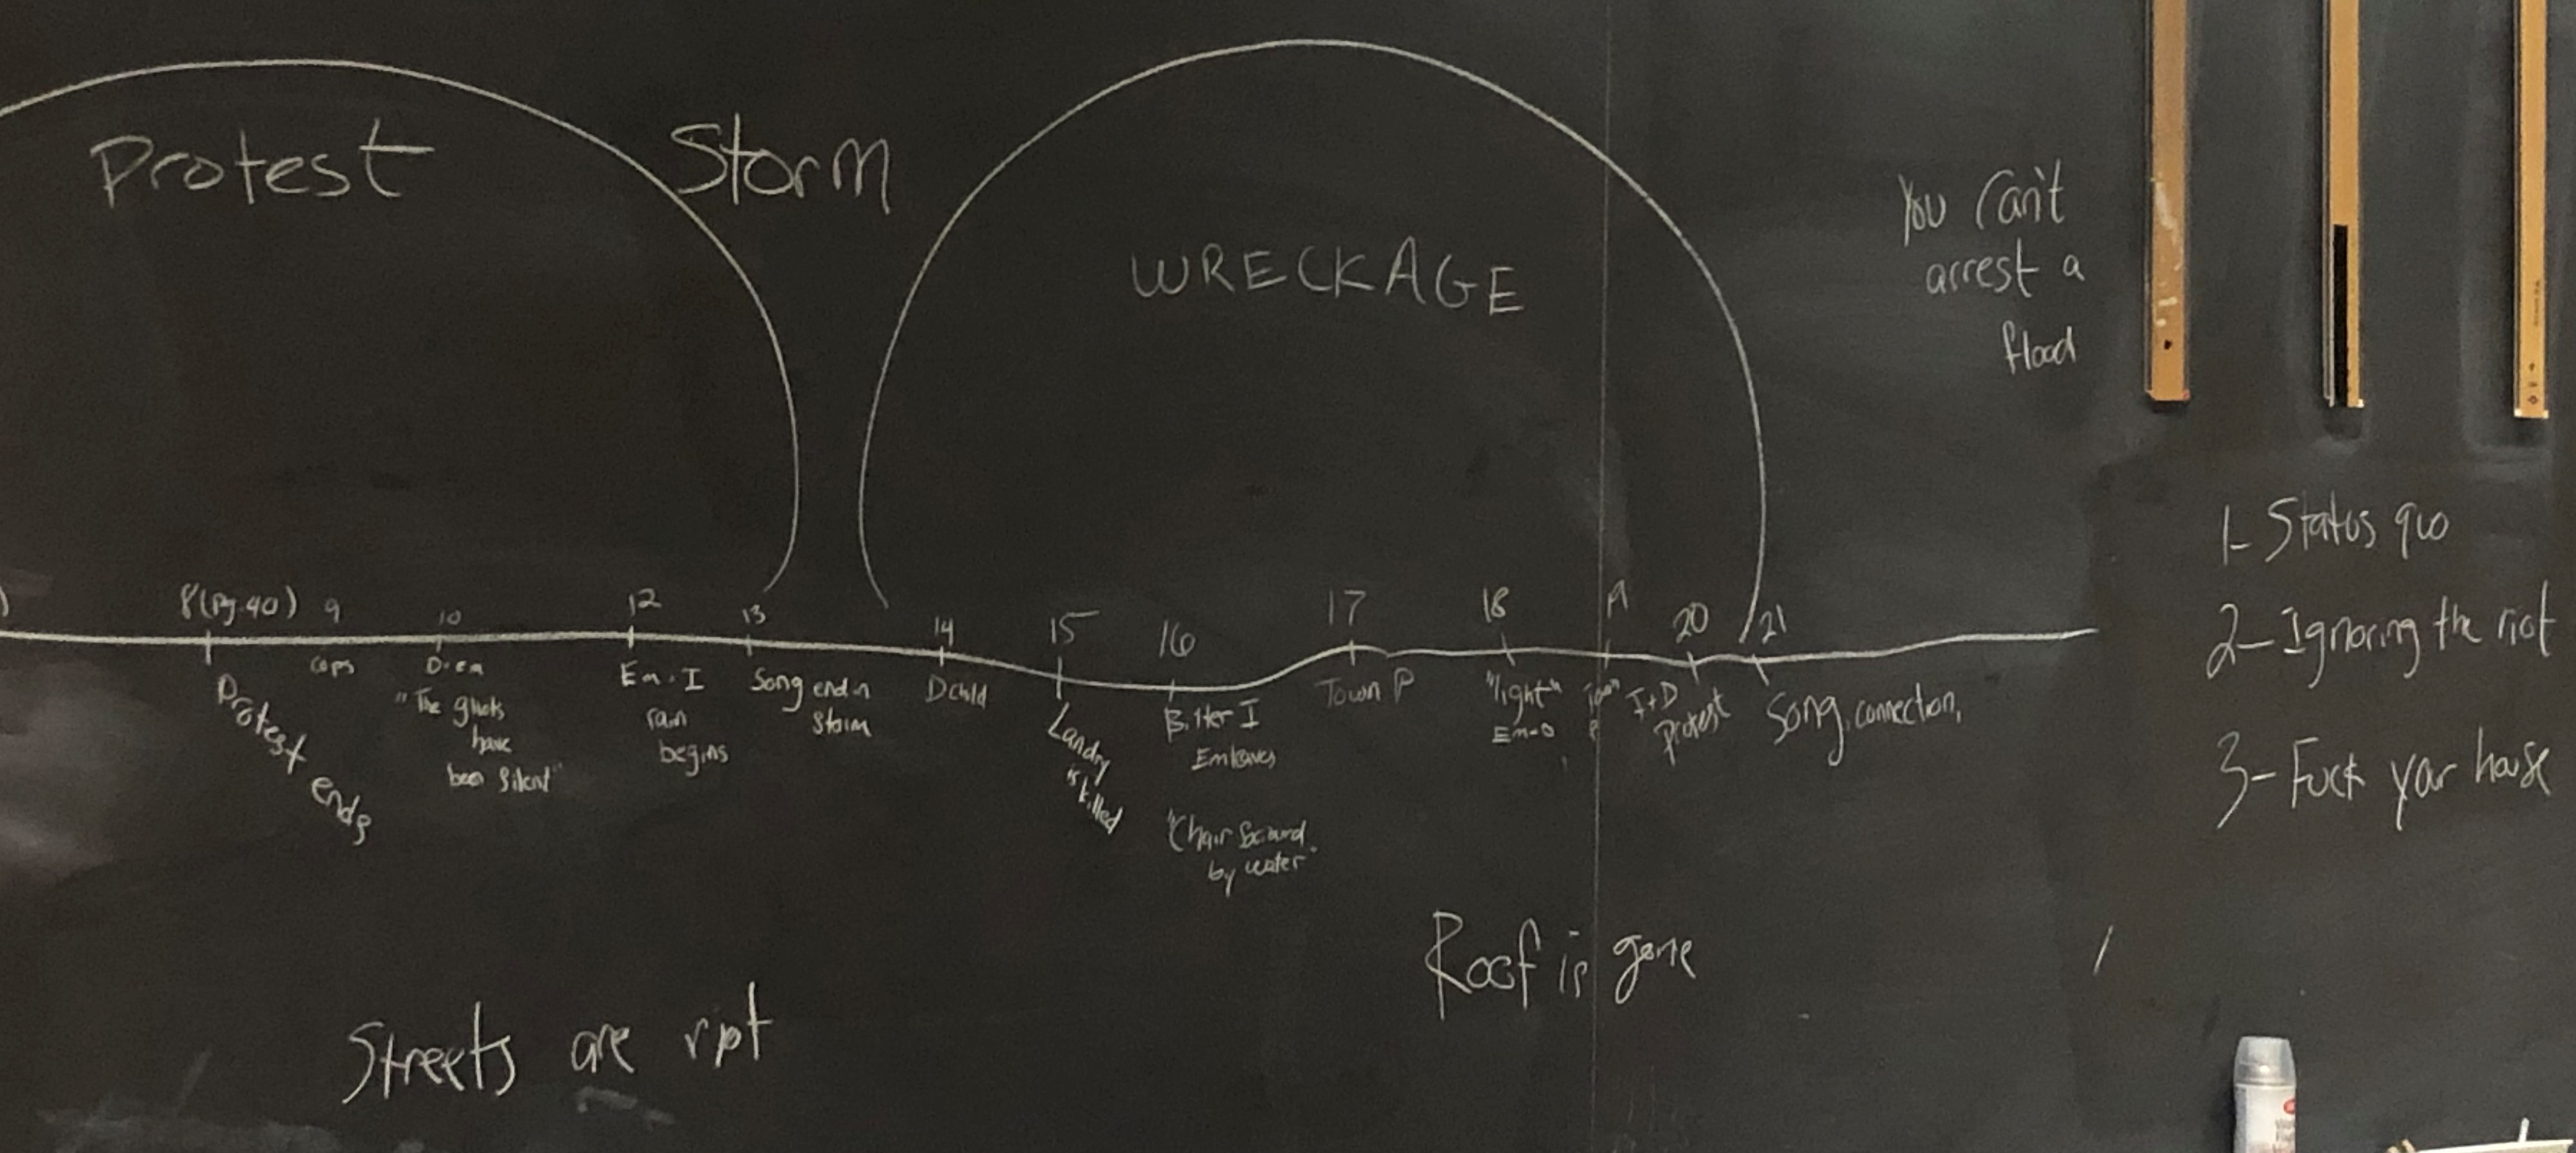 Protest
Storm
WRECKAGE
You Can't
arrest a
flood
8 (pg. 40)
9
10
12
13
14
15
16
17
18
20
21
Protest ends
cops
"The ghosts
have
been silent"
Em. I
rain
begins
Song end in
storm
D child
Landry
is killed
Bitter I
Em leaves
"Chair
by water"
Town P
"light"
I + D
protest
Song, connection,
1- Status quo
2- Ignoring the riot
3- Fuck your house
Roof is gone
Streets are